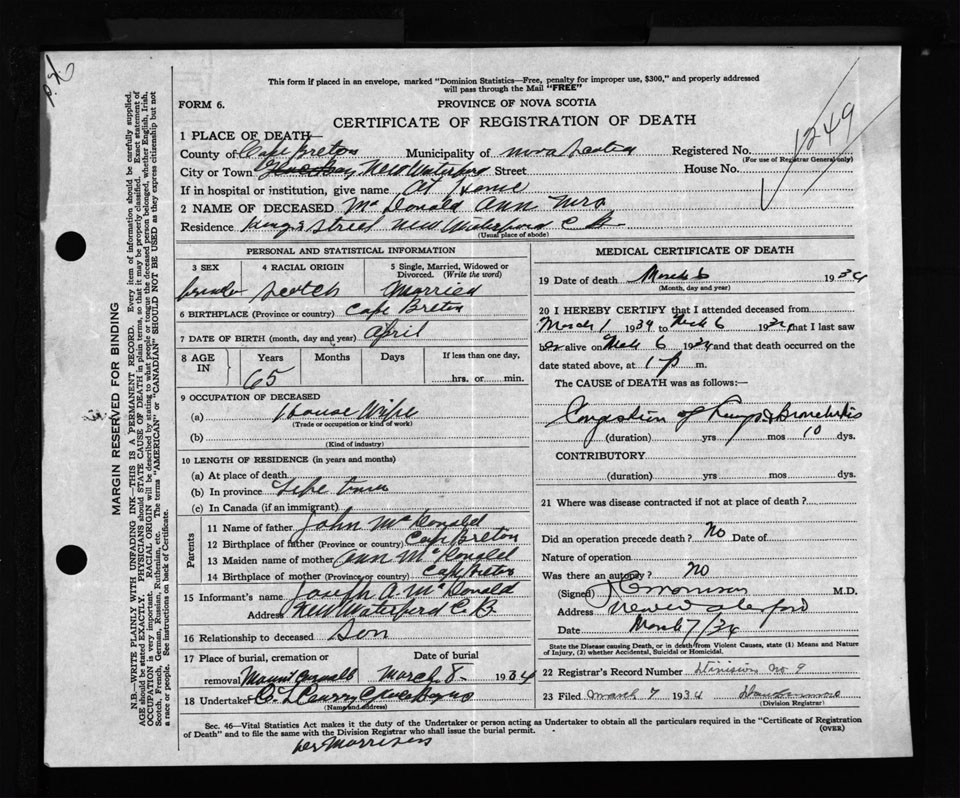 This form if placed in an envelope, marked "Dominion Statistics—Free, penalty for improper use, $300," and properly addressed
will pass through the Mail "FREE"
FORM 6.
PROVINCE OF NOVA SCOTIA
CERTIFICATE OF REGISTRATION OF DEATH
1249
1 PLACE OF DEATH—
County of Cape Breton Municipality of Nova Scotia Registered No.
(For use of Registrar General only)
City or Town Glace Bay New Waterford Street House No.
If in hospital or institution, give name At Home
2 NAME OF DECEASED Mc Donald Ann Mrs
Residence King's Street New Waterford C B
(Usual place of abode)
PERSONAL AND STATISTICAL INFORMATION
3 SEX 4 RACIAL ORIGIN 5 Single, Married, Widowed or Divorced. (Write the word)
Female Scotch Married
6 BIRTHPLACE (Province or country) Cape Breton
7 DATE OF BIRTH (month, day and year) April
8 AGE IN Years Months Days If less than one day,
65 hrs. or min.
9 OCCUPATION OF DECEASED
(a) House Wife
(Trade or occupation or kind of work)
(b)
(Kind of industry)
10 LENGTH OF RESIDENCE (in years and months)
(a) At place of death
(b) In province Life time
(c) In Canada (if an immigrant)
Parents
11 Name of father John Mc Donald
12 Birthplace of father (Province or country) Cape Breton
13 Maiden name of mother Ann Mc Donald
14 Birthplace of mother (Province or country) Cape Breton
15 Informant's name Joseph A. Mc Donald
Address New Waterford C.B
16 Relationship to deceased Son
17 Place of burial, cremation or removal Date of burial
Mount Carmell March 8 1934
18 Undertaker C. L. Curry Glace Bay NS
(Name and address)
per Morrison
MEDICAL CERTIFICATE OF DEATH
19 Date of death March 6 1934
(Month, day and year)
20 I HEREBY CERTIFY that I attended deceased from
March 1 1934 to Mch 6 1934, that I last saw
her alive on Mch 6 1934 and that death occurred on the
date stated above, at 1 p m.
The CAUSE OF DEATH was as follows:—
Congestion of Lungs & Bronchitis
(duration) yrs mos 10 dys.
CONTRIBUTORY
(duration) yrs mos dys.
21 Where was disease contracted if not at place of death?
Did an operation precede death? No Date of
Nature of operation
Was there an autopsy? No
(Signed) Morrison M.D.
Address New Waterford
Date March 7/34
State the Disease causing Death, or in death from Violent Causes, state (1) Means and Nature of Injury, (2) whether Accidental, Suicidal or Homicidal.
22 Registrar's Record Number Division No 9
23 Filed March 7 1934
(Division Registrar)
Sec. 46—Vital Statistics Act makes it the duty of the Undertaker or person acting as Undertaker to obtain all the particulars required in the "Certificate of Registration
of Death" and to file the same with the Division Registrar who shall issue the burial permit.
(OVER)
MARGIN RESERVED FOR BINDING
N.B.—WRITE PLAINLY WITH UNFADING INK—THIS IS A PERMANENT RECORD. Every item of information should be carefully supplied.
AGE should be stated EXACTLY. PHYSICIANS should STATE CAUSE OF DEATH in plain terms, so that it may be properly classified. Exact statement of
OCCUPATION is very important. RACIAL ORIGIN will be described by stating to what people or tongue the deceased person belonged, whether English, Irish,
Scotch, French, German, Russian, Ruthenian, etc. The terms "AMERICAN" or "CANADIAN" SHOULD NOT BE USED as they express citizenship but not
a race or people. See instructions on back of Certificate.